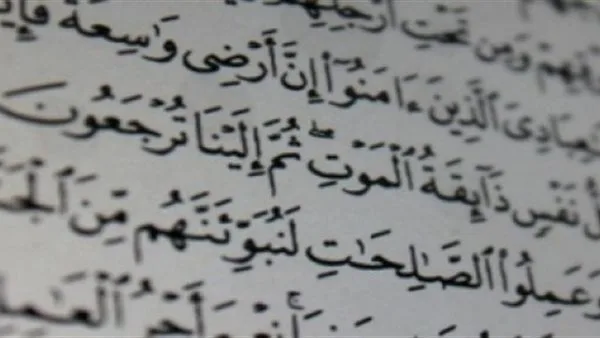 وَمِن تَحْتِ أَرْجُلِهِمْ
يَٰعِبَادِىَ ٱلَّذِينَ ءَامَنُوٓا۟ إِنَّ أَرْضِى وَٰسِعَةٌ
نَفْسٍ ذَآئِقَةُ ٱلْمَوْتِ ۖ ثُمَّ إِلَيْنَا تُرْجَعُونَ
وَعَمِلُوا۟ ٱلصَّٰلِحَٰتِ لَنُبَوِّئَنَّهُم مِّنَ
أَجْرُ